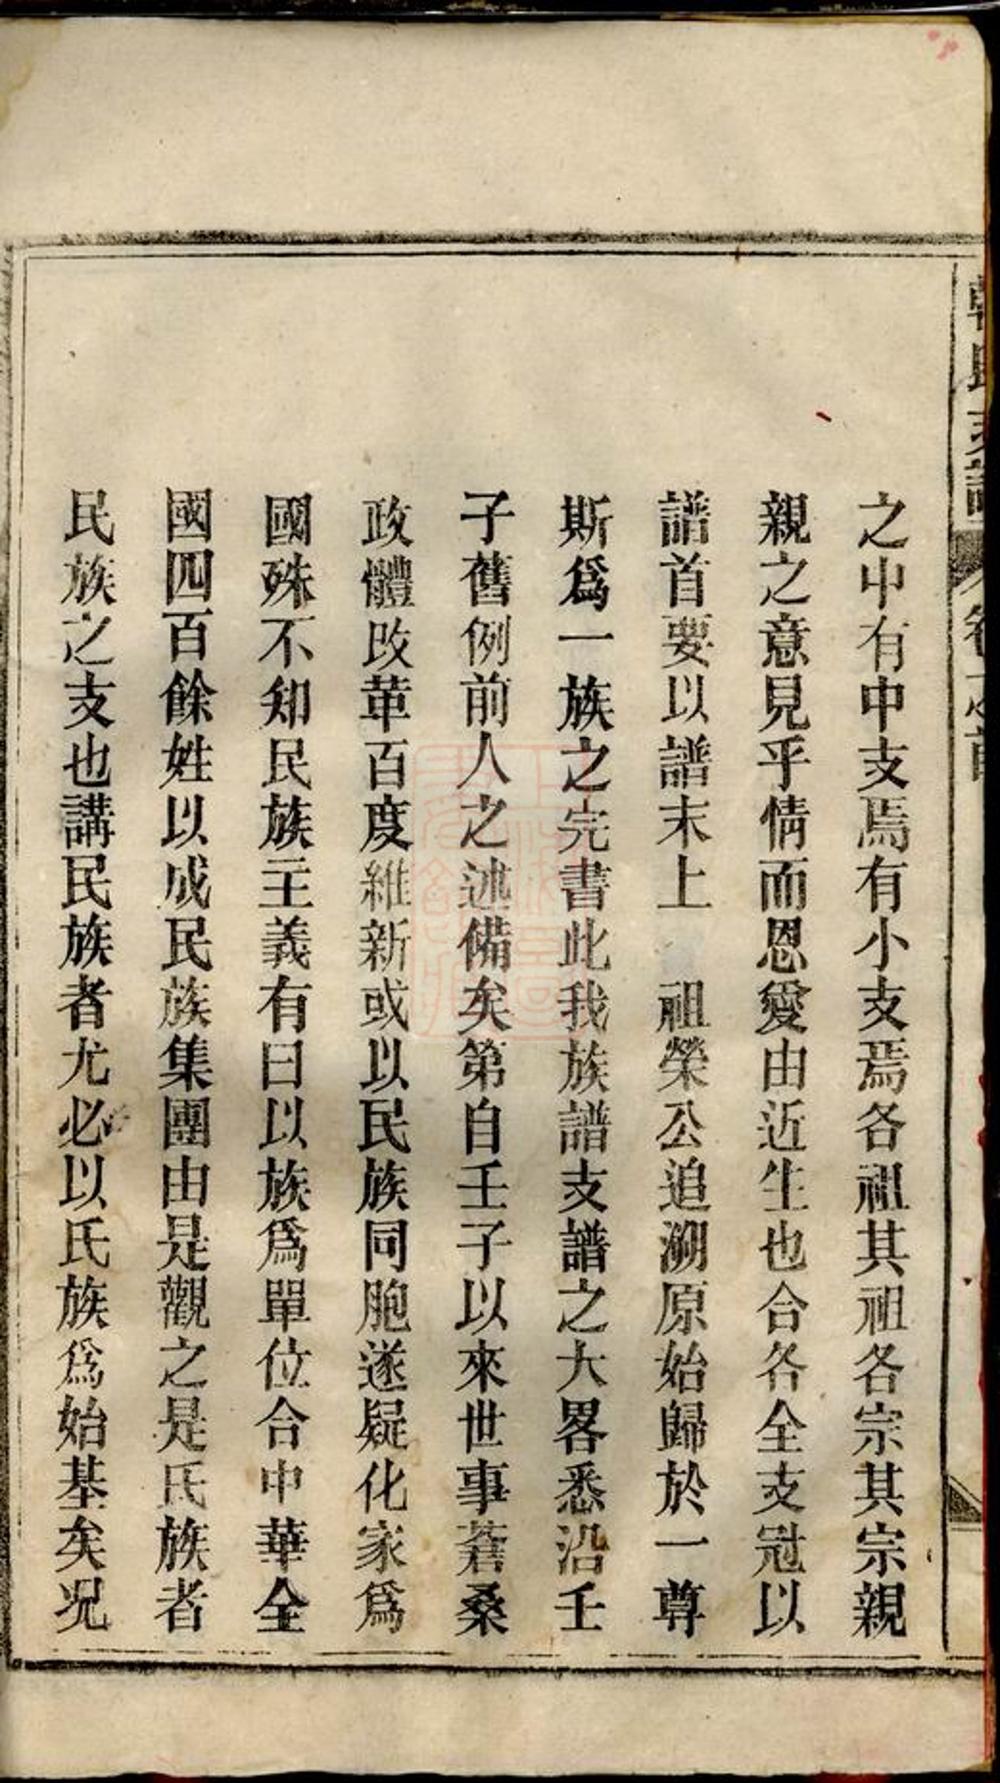 之中有中支焉有小支焉各祖其祖各宗其宗親
親之意見乎情而恩愛由近生也合各全支冠以
譜首要以譜末上　祖榮公追溯原始歸於一尊
斯爲一族之完書此我族譜支譜之大畧悉沿壬
子舊例前人之述備矣第自壬子以來世事蒼桑
政體改革百度維新或以民族同胞遂疑化家爲
國殊不知民族主義有曰以族爲單位合中華全
國四百餘姓以成民族集團由是觀之是氏族者
民族之支也講民族者尤必以氏族爲始基矣况